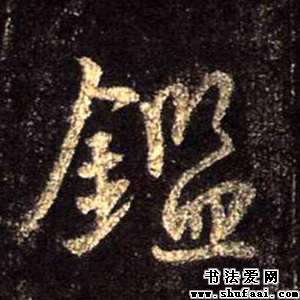 鑑
书法爱网
www.shufaai.com